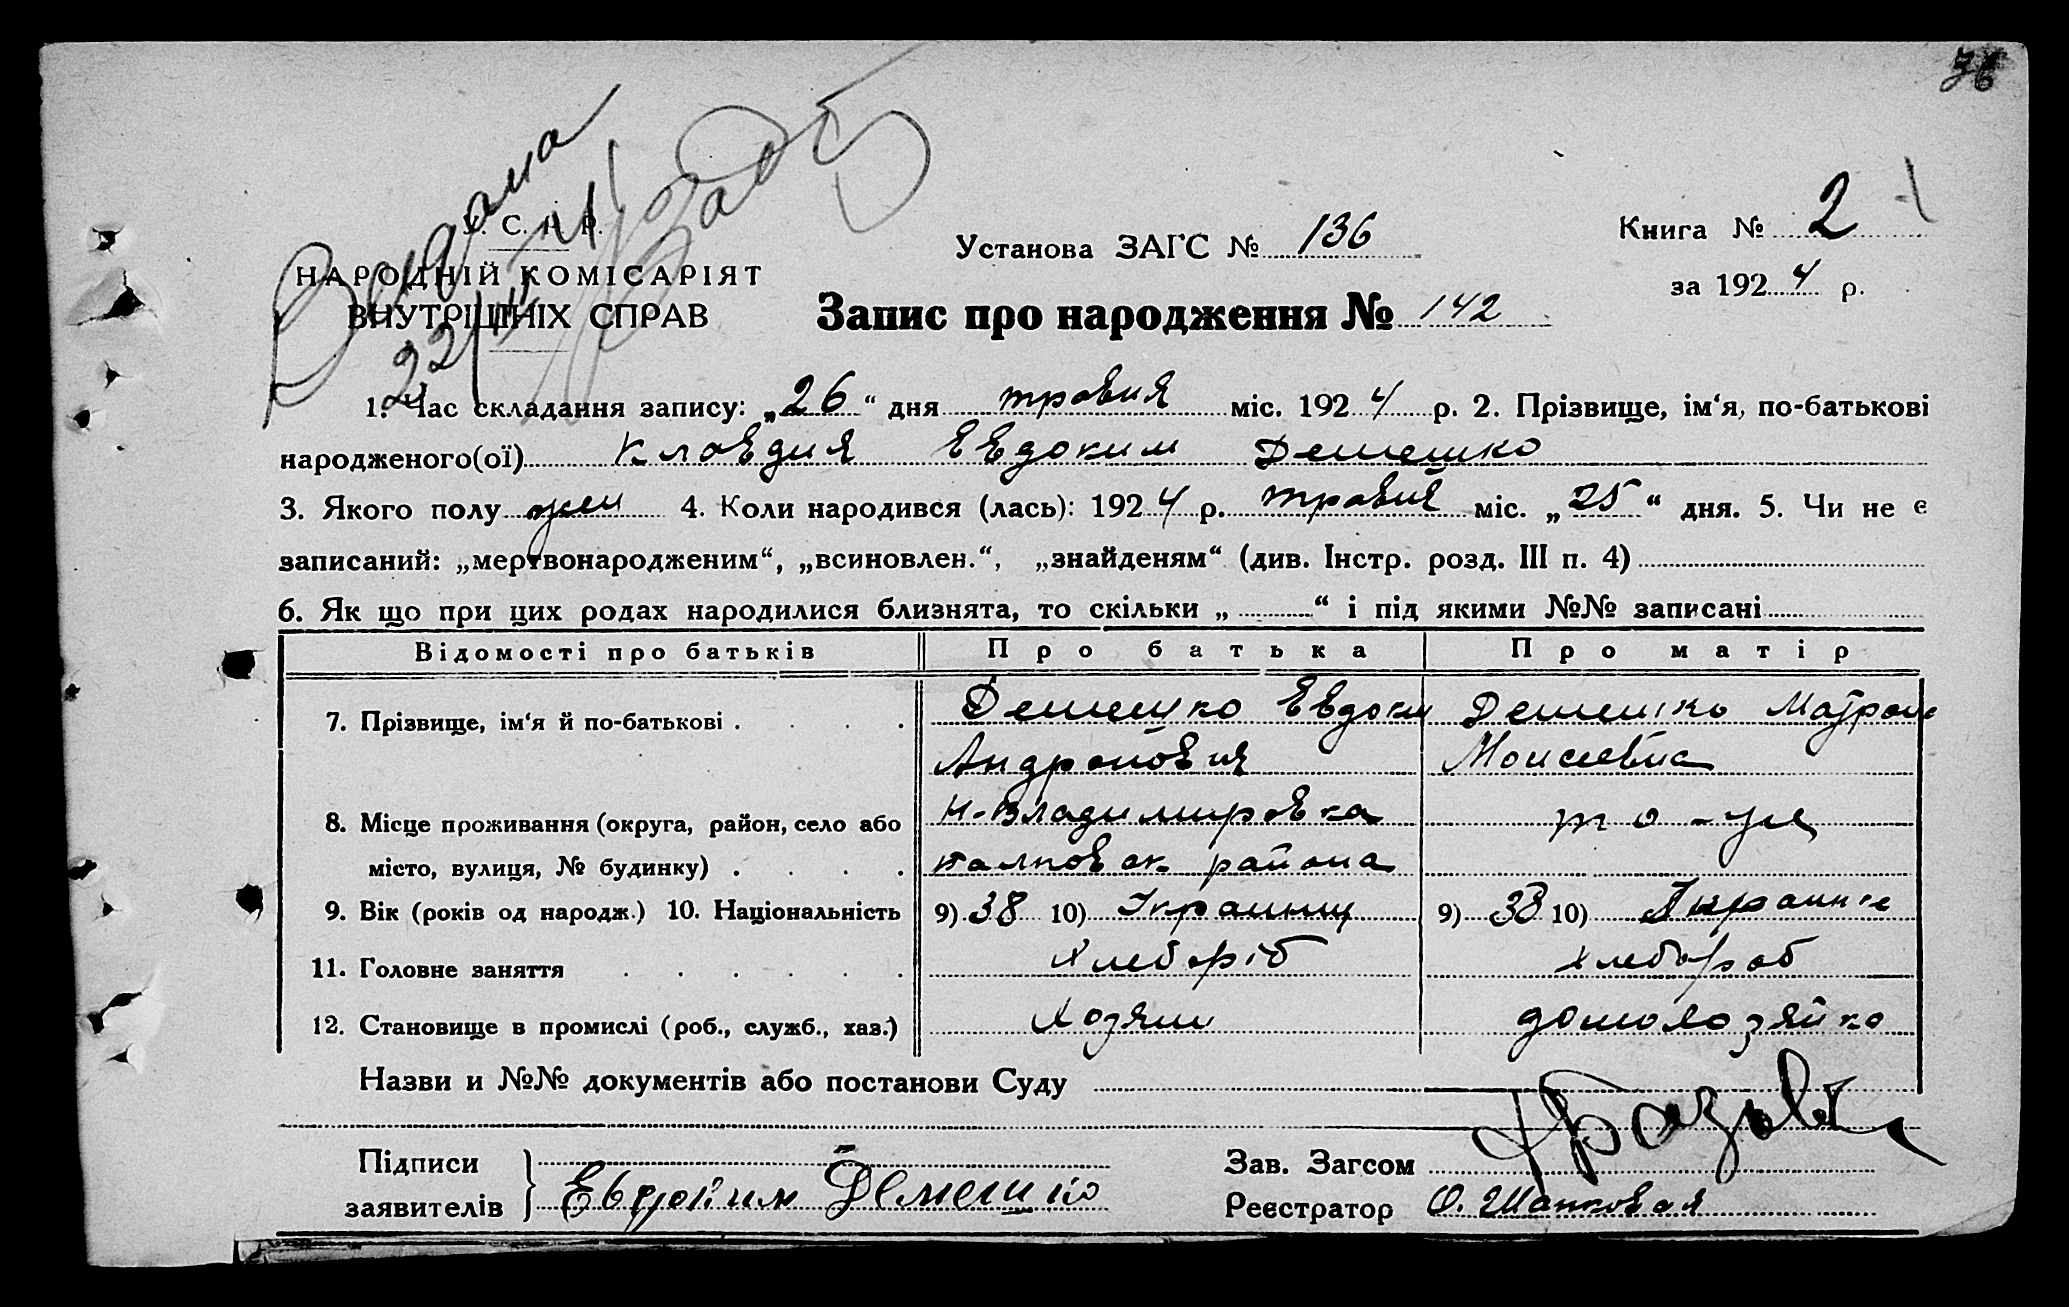 36
Видана
22/III 41
У. С. Р. Р.
НАРОДНІЙ КОМІСАРІЯТ
ВНУТРІШНІХ СПРАВ
Установа ЗАГС № 136
Книга № 2
за 1924 р.
Запис про народження № 142
1. Час складання запису: „26“ дня травня міс. 1924 р. 2. Прізвище, ім‘я, по-батькові
народженого(ої) Клавдия Евдоким Демешко
3. Якого полу жен 4. Коли народився (лась): 1924 р. травня міс. „25“ дня. 5. Чи не є
записаний: „мертвонародженим“, „всиновлен.“, „знайденям“ (див. Інстр. розд. III п. 4)
6. Як що при цих родах народилися близнята, то скільки „ “ і під якими №№ записані
Відомості про батьків Про батька Про матір
7. Прізвище, ім‘я й по-батькові Демешко Евдоким Демешко Матрона
Андронович Моисеевна
8. Місце проживання (округа, район, село або Н-Владимировка то-же
місто, вулиця, № будинку) района
9. Вік (років од народж.) 10. Національність 9) 38 10) Украинец 9) 38 10) Украинка
11. Головне заняття Хлебороб хлебороб
12. Становище в промислі (роб., служб., хаз.) Хозяин домохозяйка
Назви и №№ документів або постанови Суду
Підписи
заявителів Евдоким Демешко
Зав. Загсом
Реєстратор О. Шапковая